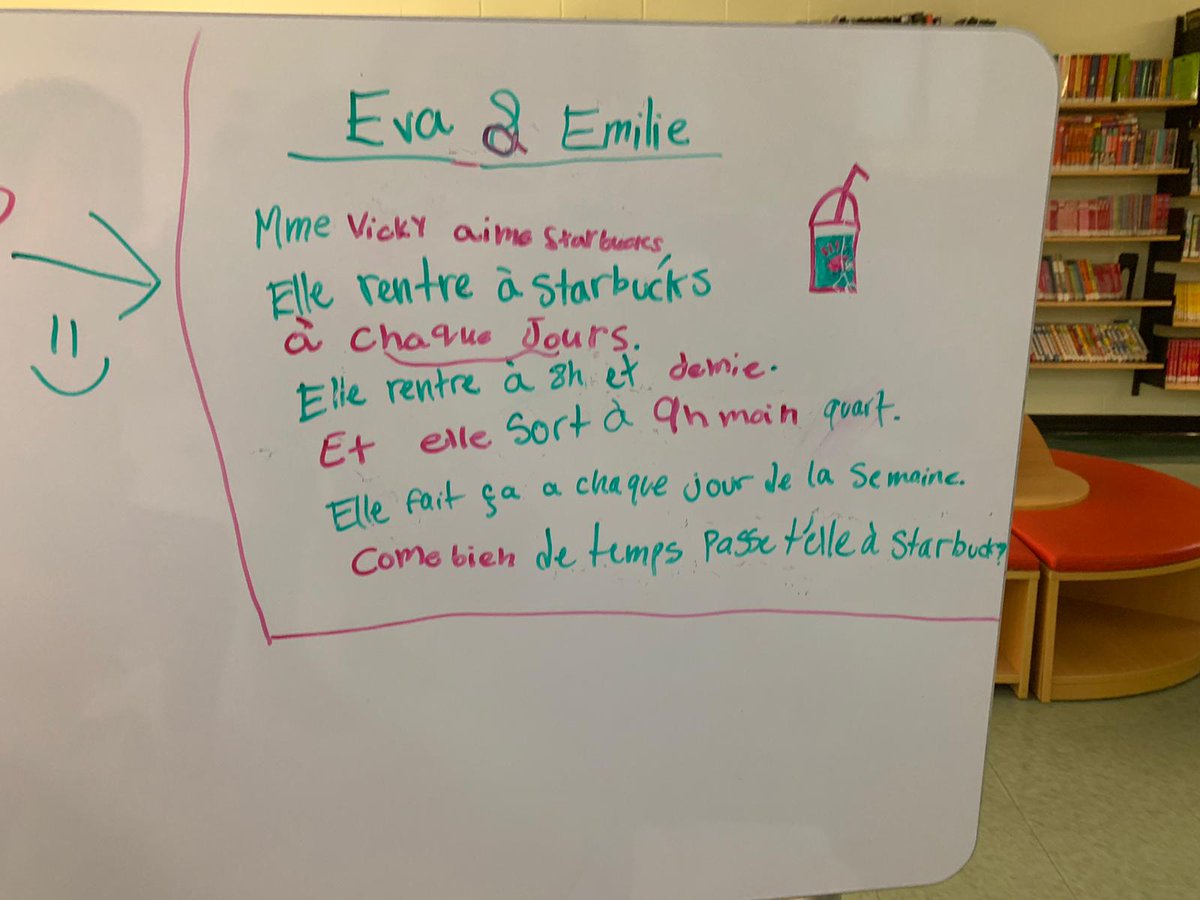 Eva & Emilie
Mme Vicky aime Starbucks
Elle rentre à Starbucks
à chaque Jours.
Elle rentre à 8h et demie.
Et elle Sort à 9h main quart.
Elle fait ça a chaque jour de la Semaine.
Come bien de temps Passe t'elle à Starbuck?